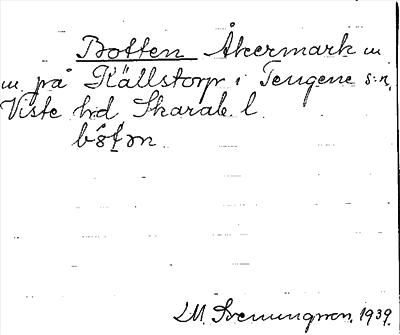 Botten Åkermark m
m. på Källstorp i Tengene s:n,
Viste hd Skarab. l.
bôtən
LM. Svenungsson. 1939.